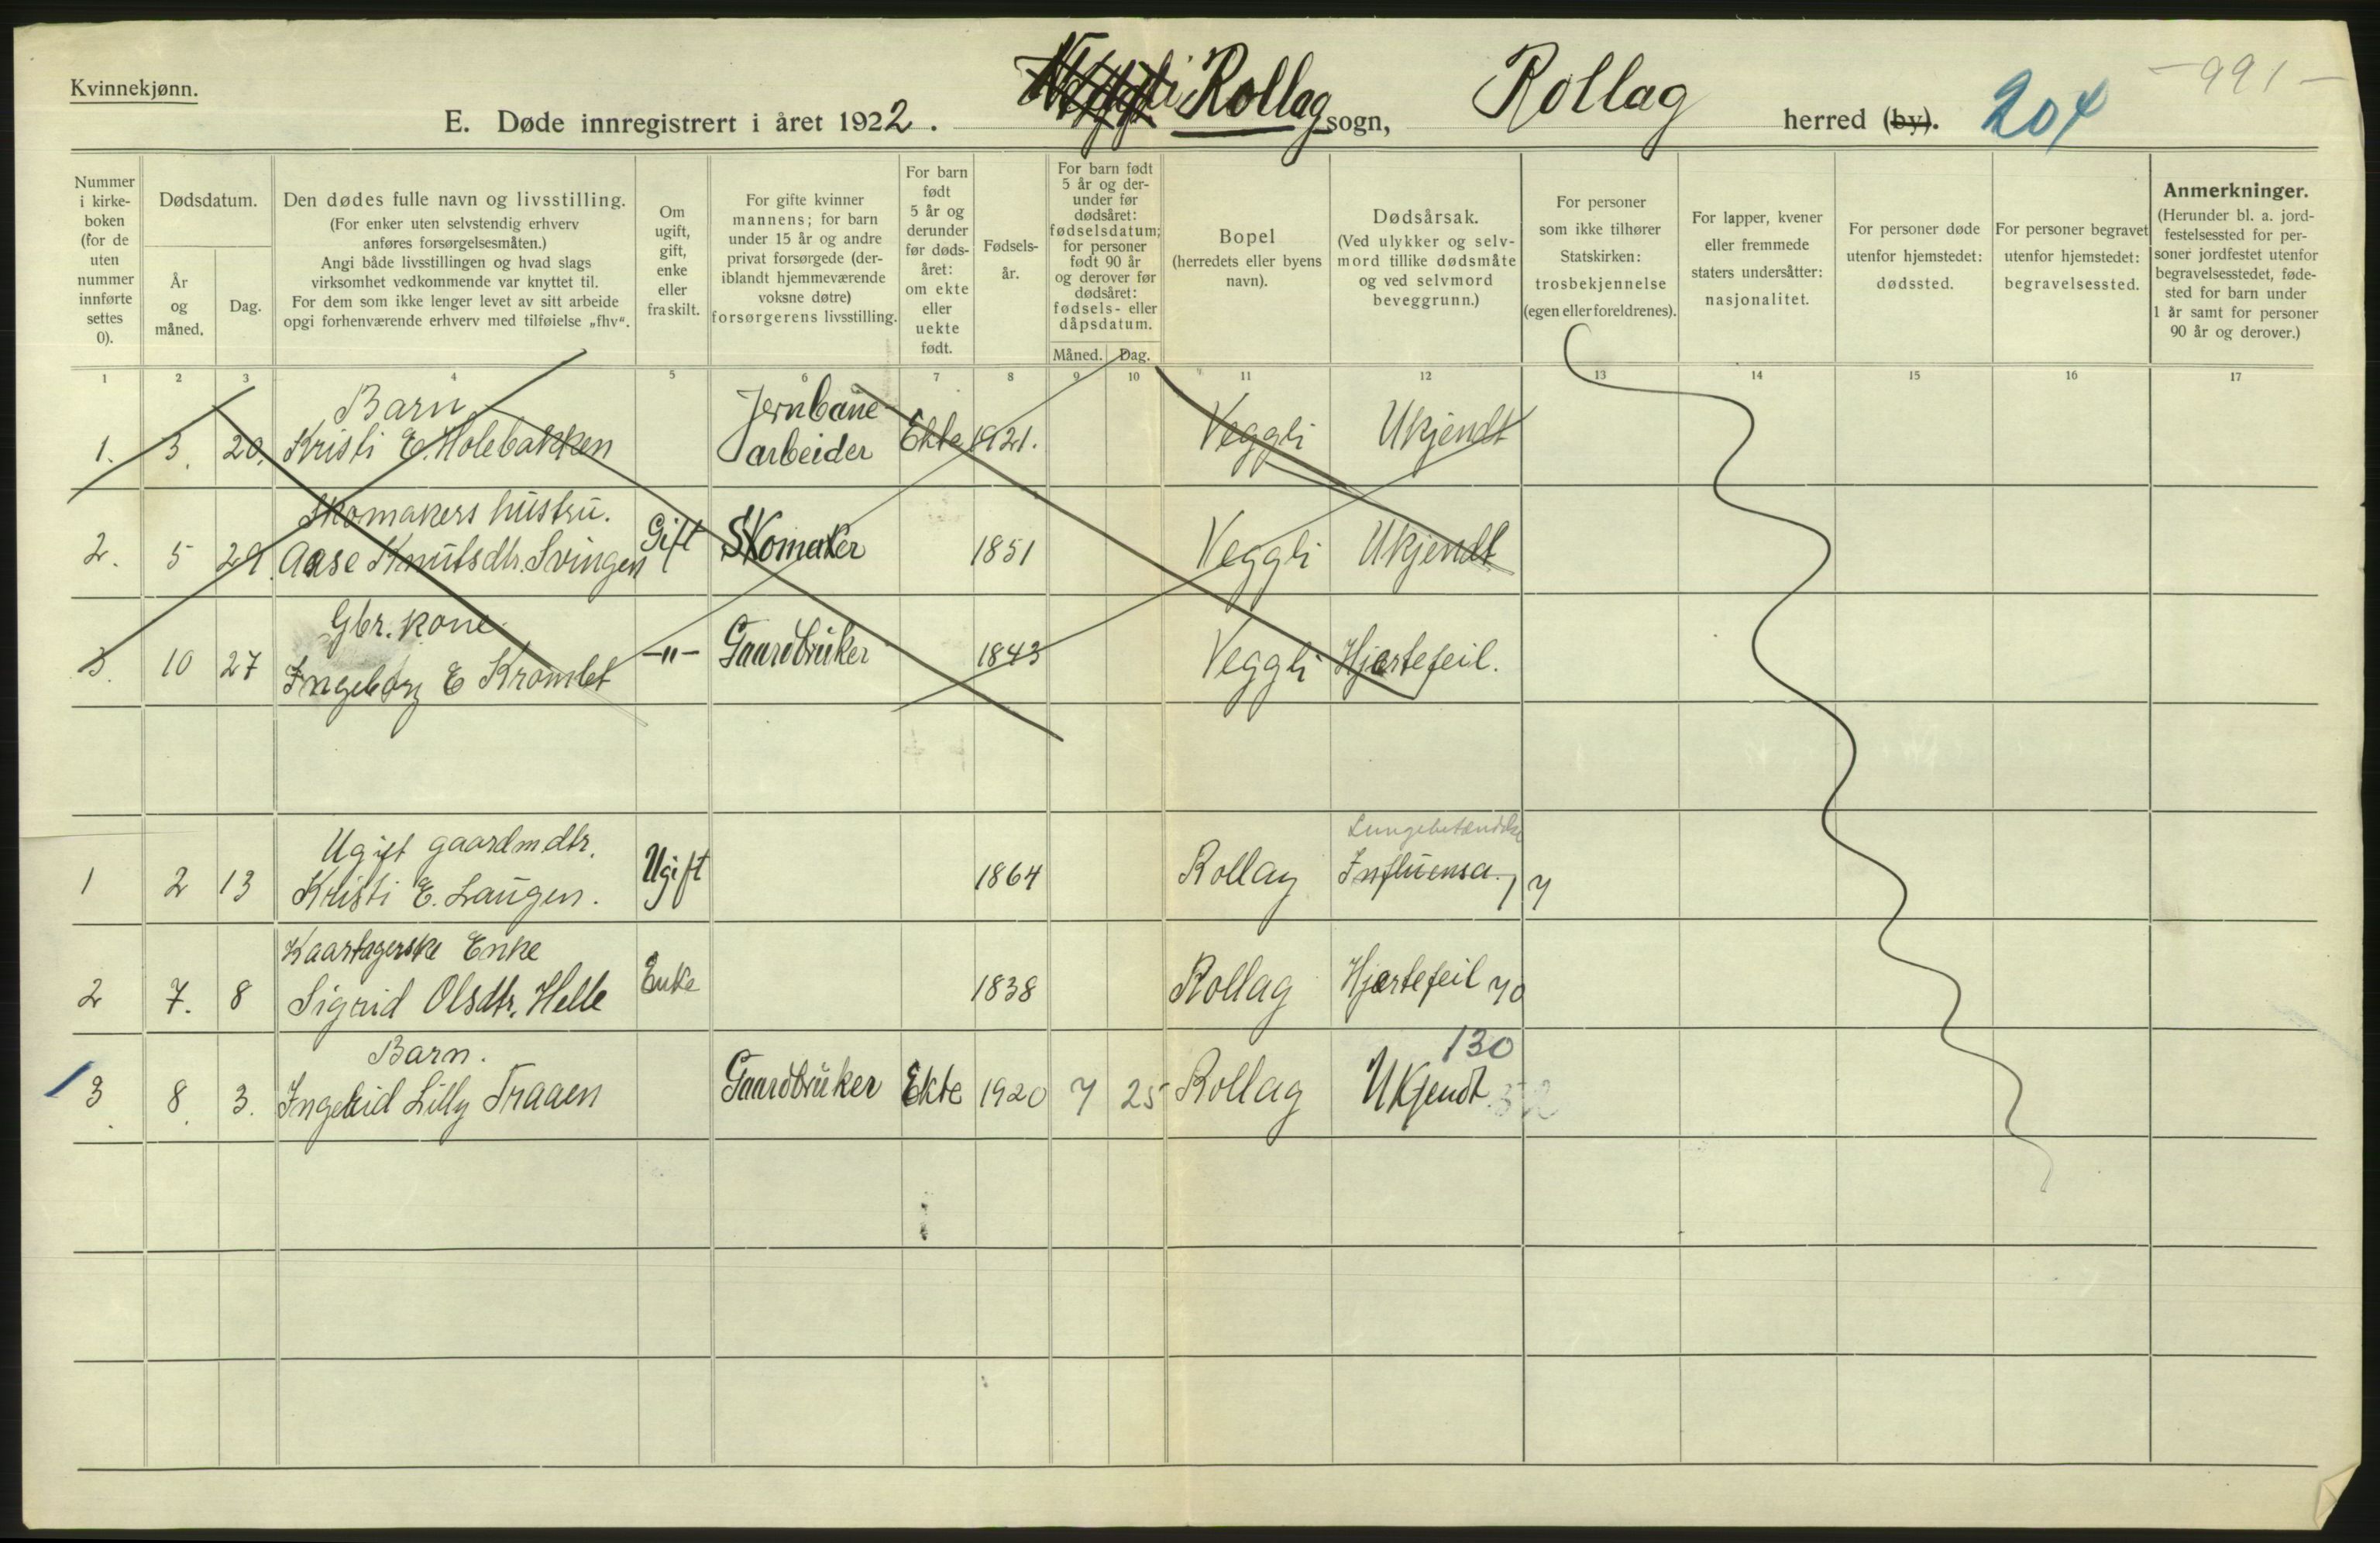 Kvinnekjønn.
E. Døde innregistrert i året 1922. Veggli Rollag sogn, Rollag herred (by). 204 -991-
Nummer i kirkeboken (for de uten nummer innførte settes 0).
Dødsdatum.
År og måned.
Dag.
Den dødes fulle navn og livsstilling.
(For enker uten selvstendig erhverv anføres forsørgelsesmåten.)
Angi både livsstillingen og hvad slags virksomhet vedkommende var knyttet til.
For dem som ikke lenger levet av sitt arbeide opgi forhenværende erhverv med tilføielse „fhv“.
Om ugift, gift, enke eller fraskilt.
For gifte kvinner mannens; for barn under 15 år og andre privat forsørgede (deriblandt hjemmeværende voksne døtre) forsørgerens livsstilling.
For barn født 5 år og derunder før dødsåret: om ekte eller uekte født.
Fødselsår.
For barn født 5 år og derunder før dødsåret: fødselsdatum; for personer født 90 år og derover før dødsåret: fødsels- eller dåpsdatum.
Måned. Dag.
Bopel (herredets eller byens navn).
Dødsårsak. (Ved ulykker og selvmord tillike dødsmåte og ved selvmord beveggrunn.)
For personer som ikke tilhører Statskirken: trosbekjennelse (egen eller foreldrenes).
For lapper, kvener eller fremmede staters undersåtter: nasjonalitet.
For personer døde utenfor hjemstedet: dødssted.
For personer begravet utenfor hjemstedet: begravelsessted.
Anmerkninger. (Herunder bl. a. jordfestelsessted for personer jordfestet utenfor begravelsesstedet, fødested for barn under 1 år samt for personer 90 år og derover.)
1 2 3 4 5 6 7 8 9 10 11 12 13 14 15 16 17
Barn Jernbane-
1. 3. 20. Kristi E. Holebakken arbeider Ekte 1921. Veggli Ukjendt
Skomakers hustru.
2. 5 29. Aase Knutsdtr. Svingen Gift Skomaker 1851 Veggli Ukjendt
Gbr. kone.
3. 10 27 Ingeborg E Kromlet -"- Gaardbruker 1843 Veggli Hjertefeil.
Ugift gaardmdtr. Lungebetændelse
1 2 13 Kristi E. Laugen. Ugift 1864 Rollag Influensa. 7
Enke
2 7. 8 Sigrid Olsdtr. Helle Enke 1838 Rollag Hjertefeil 70
Barn. 130
3. 8. 3. Ingebrid Lilly Traaen Gaardbruker Ekte 1920 7 25 Rollag Ukjendt